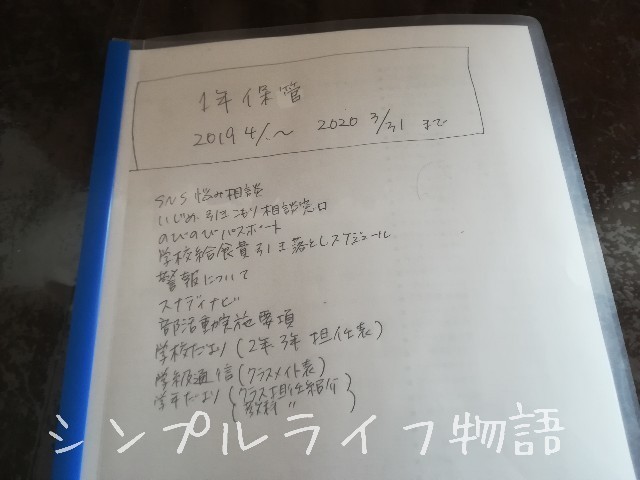 1年保管
2019 4/1〜 2020 3/31 まで
SNS悩み相談
いじめ・引きこもり相談窓口
のびのびパスポート
学校給食費引き落としスケジュール
警報について
スタディナビ
部活動実施要項
学校だより(2年3年 担任表)
学級通信(クラスメイト表)
学年だより(クラス担任紹介
教科 〃)
シンプルライフ物語